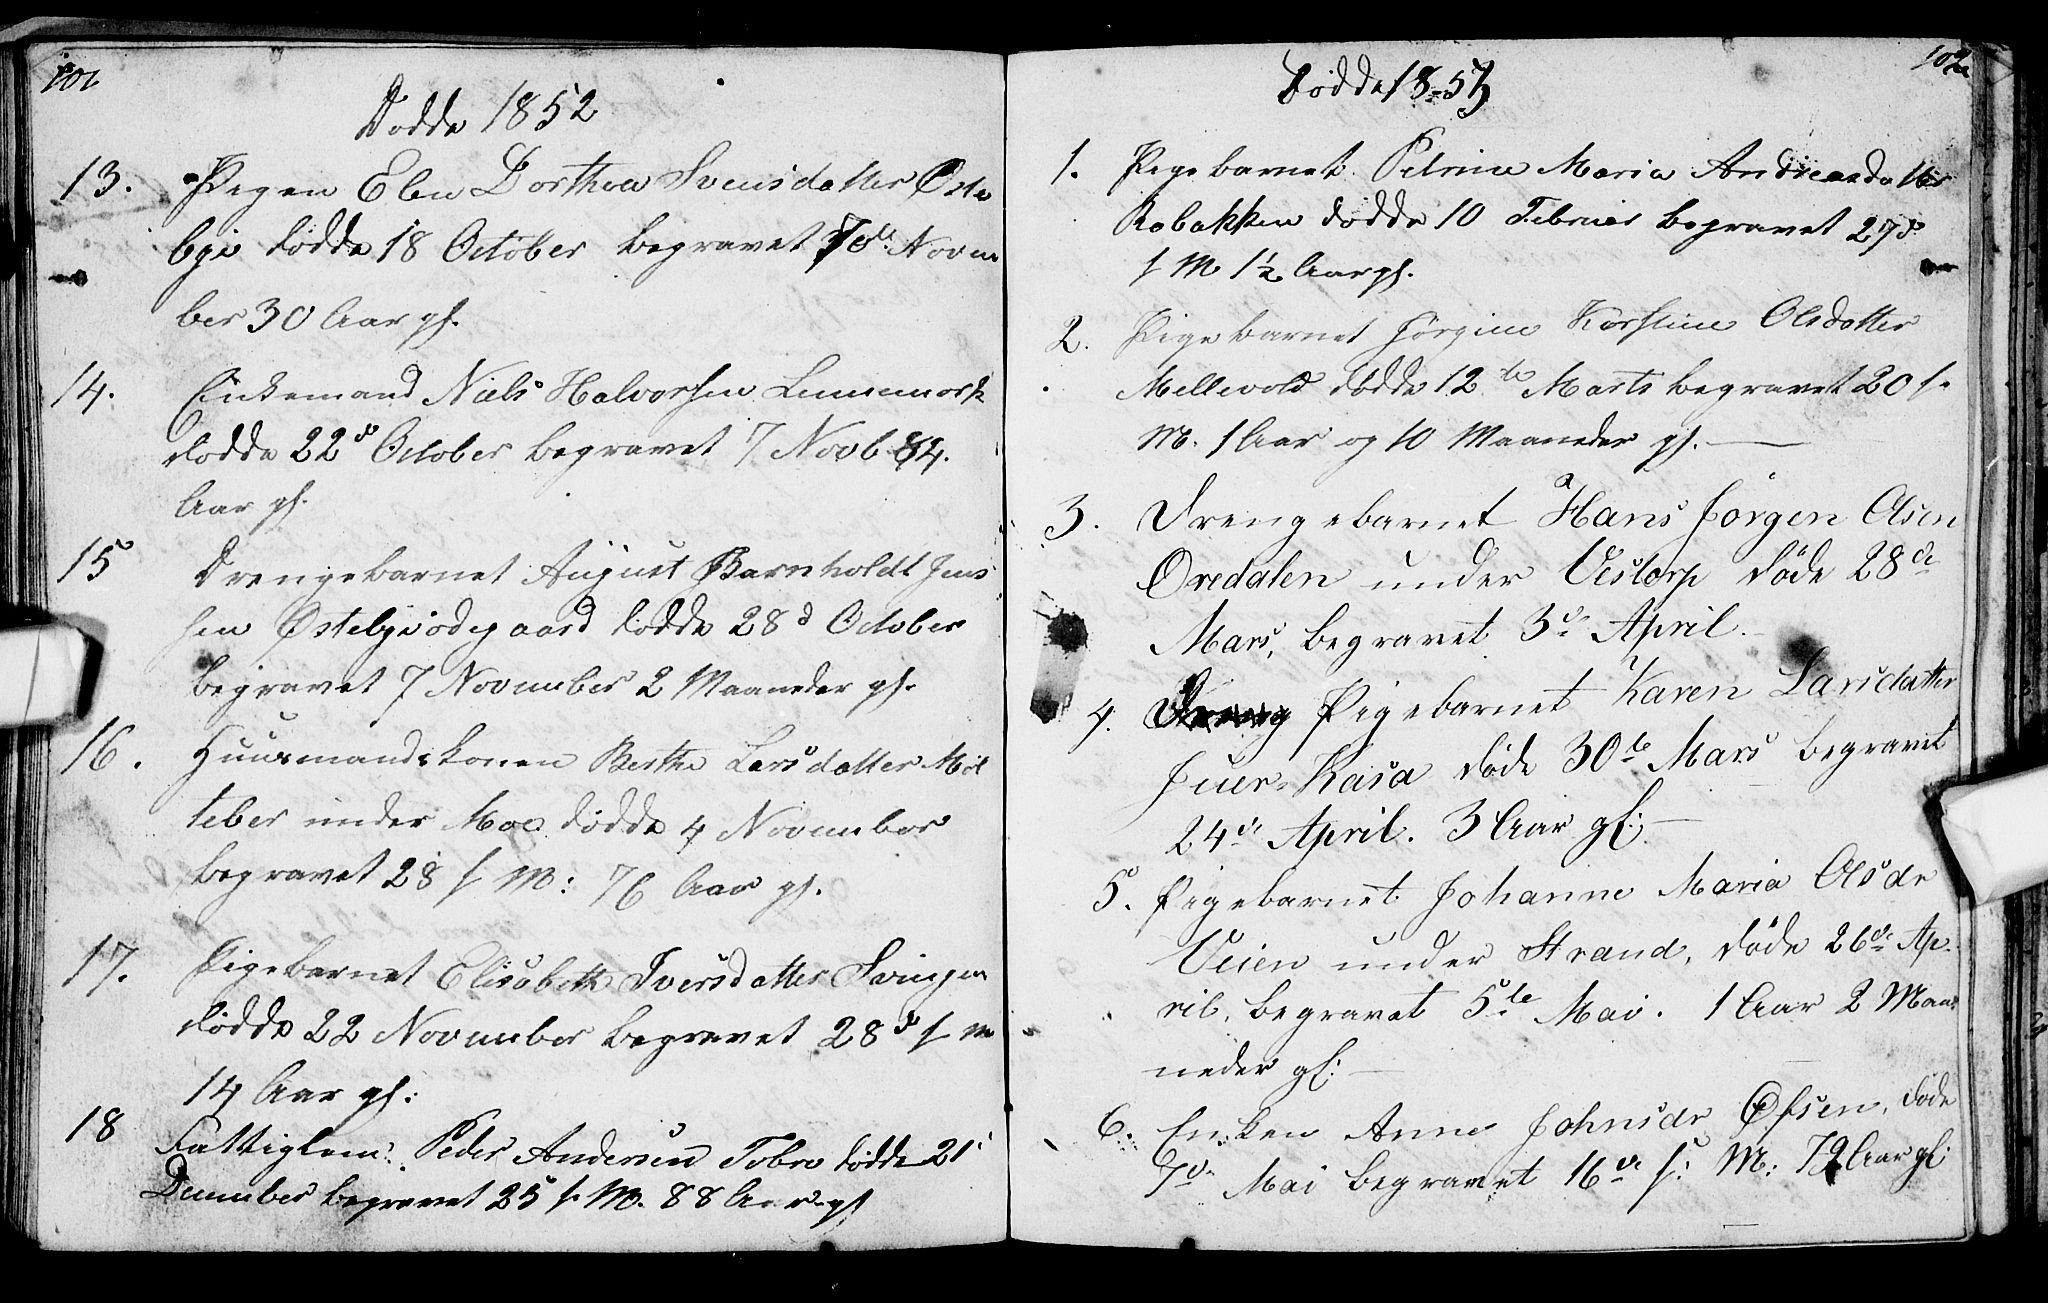 101
Dødde 1852
13. Pigen Elen Dorthea Svensdatter Øste
bye dødde 18 October begravet 7de Novem
ber 30 Aar gl.
14. Enkemand Niels Halvorsen Lunnemork
dødde 22de October begravet 7 Novb 84.
Aar gl.
15 Drengebarnet August Barnholdt Jens
sen Østebyeødegaard dødde 28d October
begravet 7 November 2 Maaneder gl.
16. Huusmandskonen Berthe Larsdatter Møl
teber under Moe dødde 4 November
begravet 28 s. M: 76 Aar gl.
17. Pigebarnet Elisabeth Iversdatter Svingen
dødde 22 November begravet 28de s. M
14 Aar gl:
18 Fattiglem: Peder Andersen Tobro dødde 21
December begravet 25 s. M. 88 Aar gl
102
Dødde 1853
1. Pigebarnet Petrine Maria Andreasdatter
Robakken dødde 10 Februar begravet 27de
s M 1½ Aar gl.
2. Pigebarnet Jørgine Kirstine Olsdatter
Mellevold dødde 12te Marts begravet 20 s.
M. 1 Aar og 10 Maaneder gl.
3. Drengebarnet Hans Jørgen Olsen
Oredalen under Vestorp døde 28de
Mars, begravet 3de April.
4. Pigebarnet Karen Larsdatter
Juer-Kasa døde 30te Mars begravet
24de April. 3 Aar gl:
5. Pigebarnet Johanne Maria Olsdr
Veien under Strand, døde 26de Ap-
ril, begravet 5te Mai. 1 Aar 2 Maa-
neder gl:
6. Enken Anne Johnsdr Ofsen, døde
7de Mai begravet 16de s: M: 72 Aar gl: